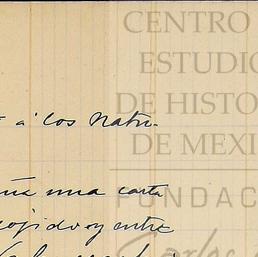 CENTRO
ESTUDIO
DE HISTO
á los natu-
DE MEXI
una carta
FUNDAC
ojido y entre
Carlos